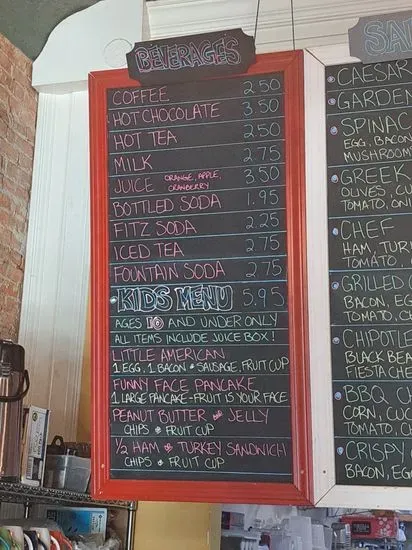 BEVERAGES
COFFEE 2.50
HOT CHOCOLATE 3.50
HOT TEA 2.50
MILK 2.75
JUICE ORANGE, APPLE, CRANBERRY 3.50
BOTTLED SODA 1.95
FITZ SODA 2.25
ICED TEA 2.75
FOUNTAIN SODA 2.75
KIDS MENU 5.95
AGES 10 AND UNDER ONLY
ALL ITEMS INCLUDE JUICE BOX!
LITTLE AMERICAN
1 EGG, 1 BACON & SAUSAGE, FRUIT CUP
FUNNY FACE PANCAKE
1 LARGE PANCAKE-FRUIT IS YOUR FACE
PEANUT BUTTER AND JELLY
CHIPS & FRUIT CUP
1/2 HAM & TURKEY SANDWICH
CHIPS & FRUIT CUP
SAL
CAESAR
GARDEN
SPINAC
EGG, BACON
MUSHROOM
GREEK
OLIVES, CU
TOMATO, ONI
CHEF
HAM, TURK
TOMATO,
GRILLED
BACON, EG
TOMATO, C
CHIPOTLE
BLACK BEA
FIESTA CHE
BBQ C
CORN, CUC
TOMATO, CH
CRISPY
BACON, EG